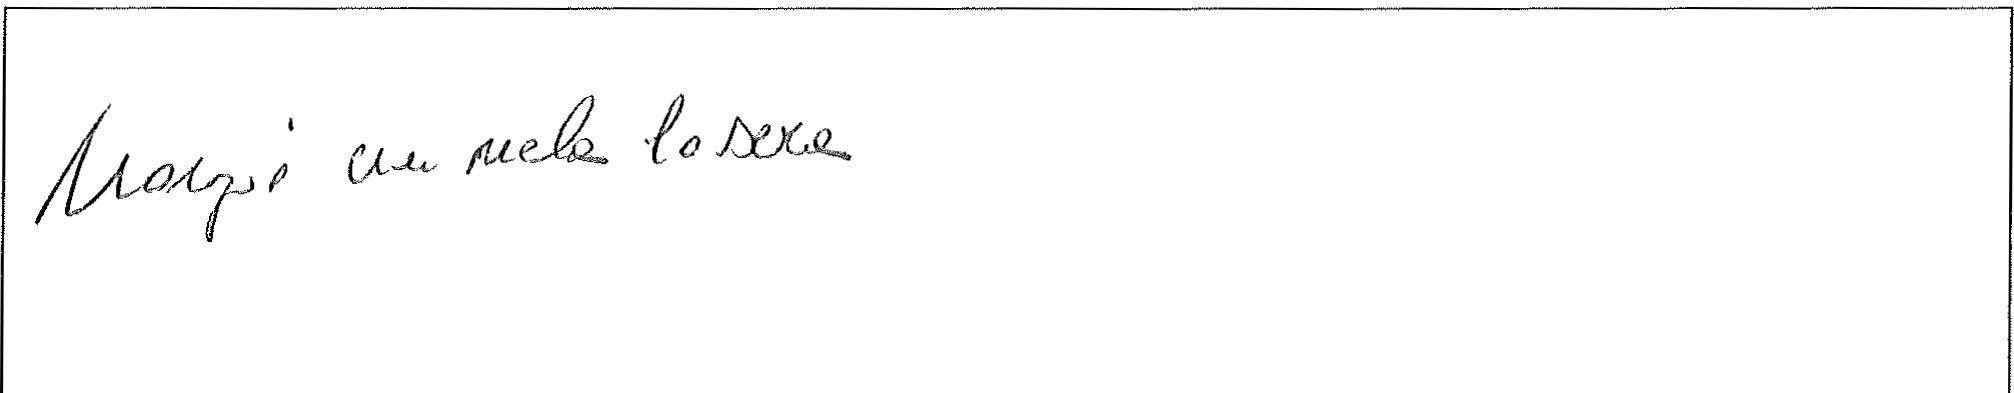 Mangio una mela la sera